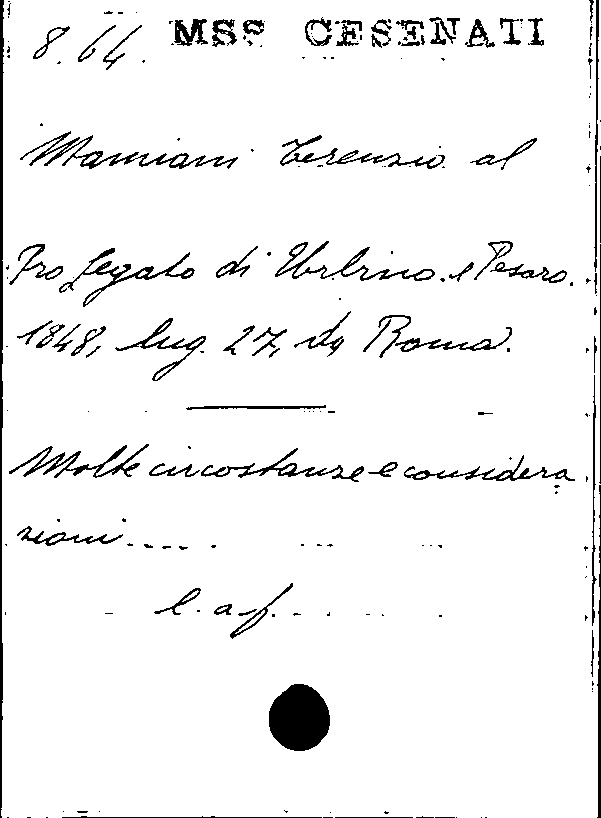 8.64. MSS CESENATI
Mamiani Terenzio al
Pro Legato di Urbino e Pesaro.
1848, lug. 27, da Roma.
Molte circostanze e considera
zioni.....
l. a f.